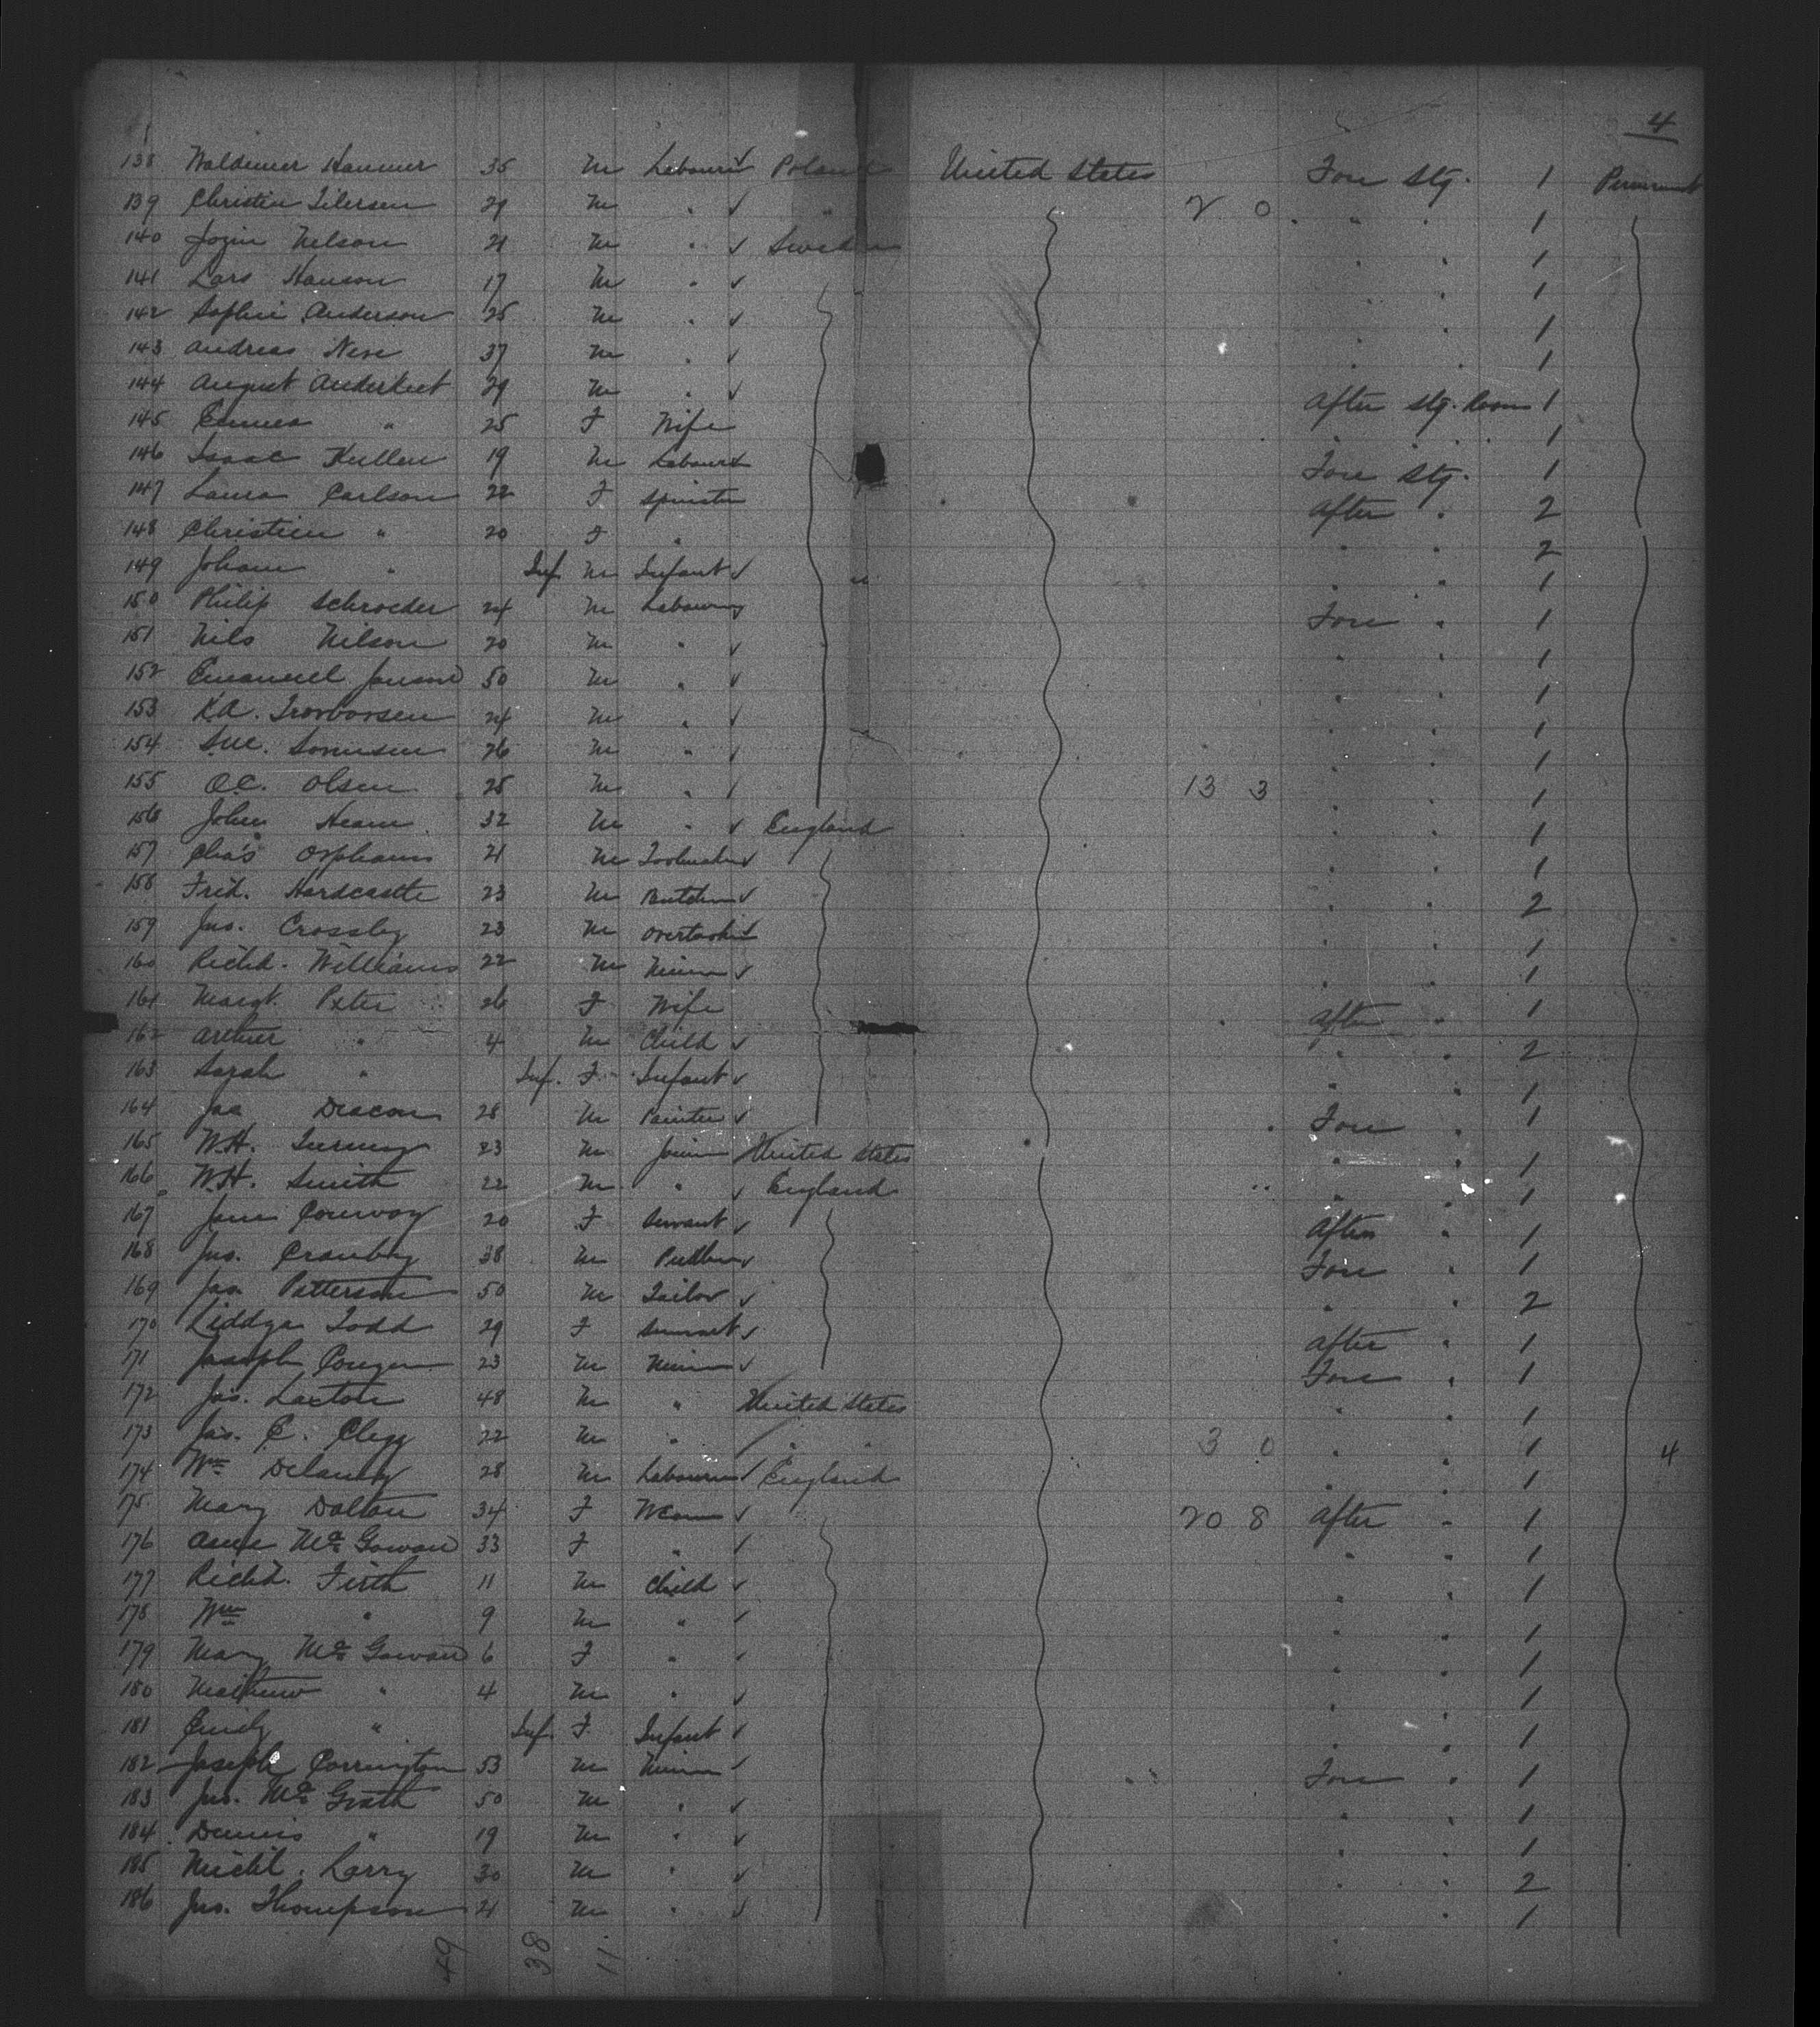 4
138 Waldemer Hammer 35 M Labourer ✓ Poland United States Fore Stg. 1 Permanent
139 Christin 29 M " ✓ " 2 0 " " 1
140 Nelson 21 M " ✓ Sweden " " 1
141 Lars Hanson 17 M " ✓ " " 1
142 Sophie Anderson 25 M " ✓ " " 1
143 Andreas 37 M " ✓ " " 1
144 August 29 M " ✓ After Stg. Room 1
145 Emma " 25 F Wife " " " 1
146 Isaac Kullen 19 M Labourer ✓ Fore Stg. 1
147 Laura Carlson 22 F Spinster After " 2
148 Christien " 20 F " " " 2
149 Johan " Inf. M Infant ✓ " " 1
150 Philip Schroeder 24 M Labourer Fore " 1
151 Nils Nilson 20 M " ✓ " " 1
152 Emanuel 50 M " ✓ " " 1
153 K.A. 24 M " ✓ " " 1
154 Sorensen 26 M " ✓ " " 1
155 O.C. Olsen 25 M " ✓ 13 3 " " 1
156 John Heam 32 M " ✓ England " " 1
157 Chas Orphans 21 M Toolmaker ✓ " " 1
158 Fred. Hardcastle 23 M Butcher ✓ " " 2
159 Jno. Crossley 23 M ✓ " " 1
160 Richd. Williams 22 M Miner ✓ " " 1
161 Margt. 26 F Wife After " 1
162 Arthur " 4 M Child ✓ " " 2
163 Sarah " Inf. F Infant ✓ " " 1
164 Jas Deacon 28 M Painter ✓ Fore " 1
165 W.H. 23 M Joiner United States " " 1
166 W.H. Smith 22 M " ✓ England " " 1
167 Jane Conway 20 F Servant ✓ After " 1
168 Jno. 38 M Puddler ✓ Fore " 1
169 Jas Patterson 50 M Tailor ✓ " " 2
170 Liddya Todd 29 F Servant ✓ After " 1
171 Joseph 23 M Miner ✓ Fore " 1
172 Jas. Laxton 48 M " United States " " 1
173 Jas. C. Clegg 22 M " " " 3 0 " " 1 4
174 Wm Delaney 28 M Labourer ✓ England " " 1
175 Mary Dalton 34 F ✓ 20 8 After " 1
176 Anne McGowan 33 F " ✓ " " 1
177 Richd. Firth 11 M Child ✓ " " 1
178 Wm " 9 M " ✓ " " 1
179 Mary McGowan 6 F " ✓ " " 1
180 Mathew " 4 M " ✓ " " 1
181 Emily " Inf. F Infant ✓ " " 1
182 Joseph Corrington 53 M Miner ✓ Fore " 1
183 Jno. McGrath 50 M " ✓ " " 1
184 Dennis " 19 M " ✓ " " 1
185 Michl. Larry 30 M " ✓ " " 2
186 Jno. Thompson 21 M " ✓ " " 1
49 38 11